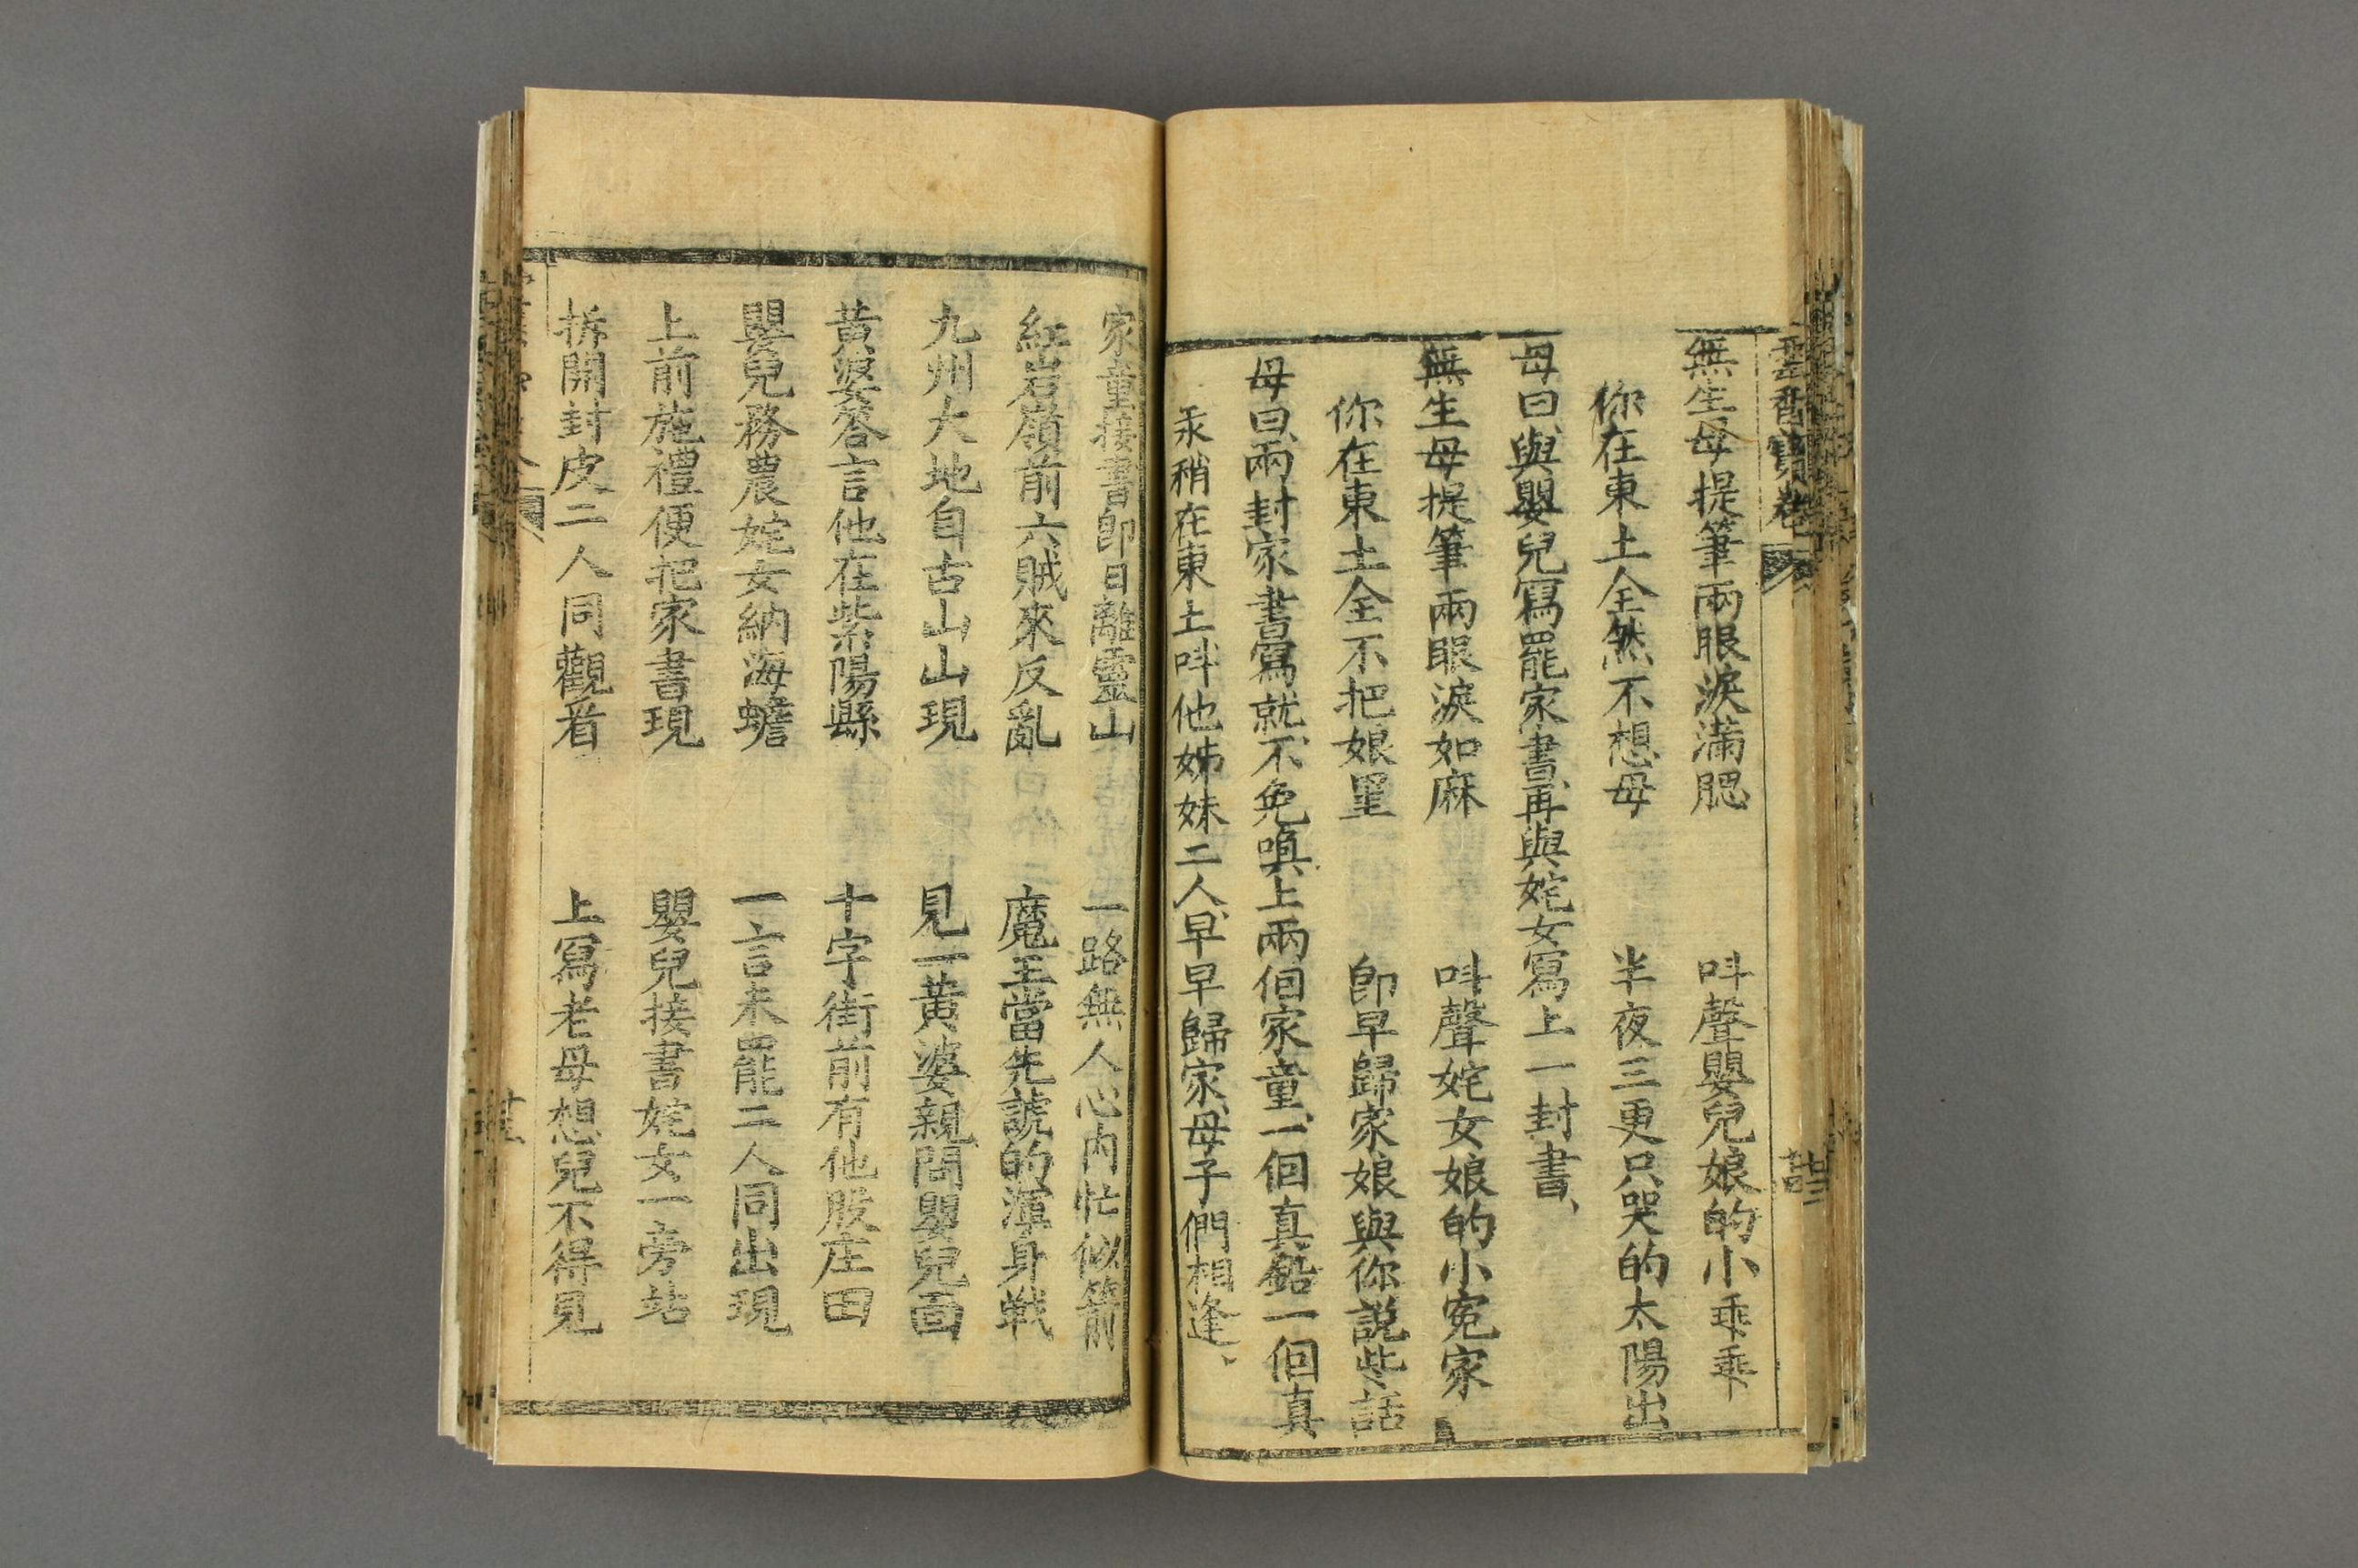 雲香寶卷
無生母提筆兩眼淚滿腮 呌聲嬰兒娘的小乖乖
你在東土全然不想母 半夜三更只哭的太陽出
母曰、與嬰兒寫罷家書、再與姹女寫上一封書、
無生母提筆兩眼淚如麻 呌聲姹女娘的小寃家
你在東土全不把娘里 卽早歸家娘與你說些話
母曰、兩封家書寫就、不免喚上兩個家童、一個真鉛一個真
汞稍在東土呌他姊妹二人、早早歸家、母子們相逢、
家童接書卽日離靈山 一路無人心內忙似箭
紅岩嶺前六賊來反亂 魔王當先諕的渾身戰
九州大地自古山山現 見一黃婆親問嬰兒面
黃婆答言他在紫陽縣 十字街前有他股庄田
嬰兒務農姹女納海蟾 一言未罷二人同出現
上前施禮便把家書現 嬰兒接書姹女一旁站
拆開封皮二人同觀看 上寫老母想兒不得見